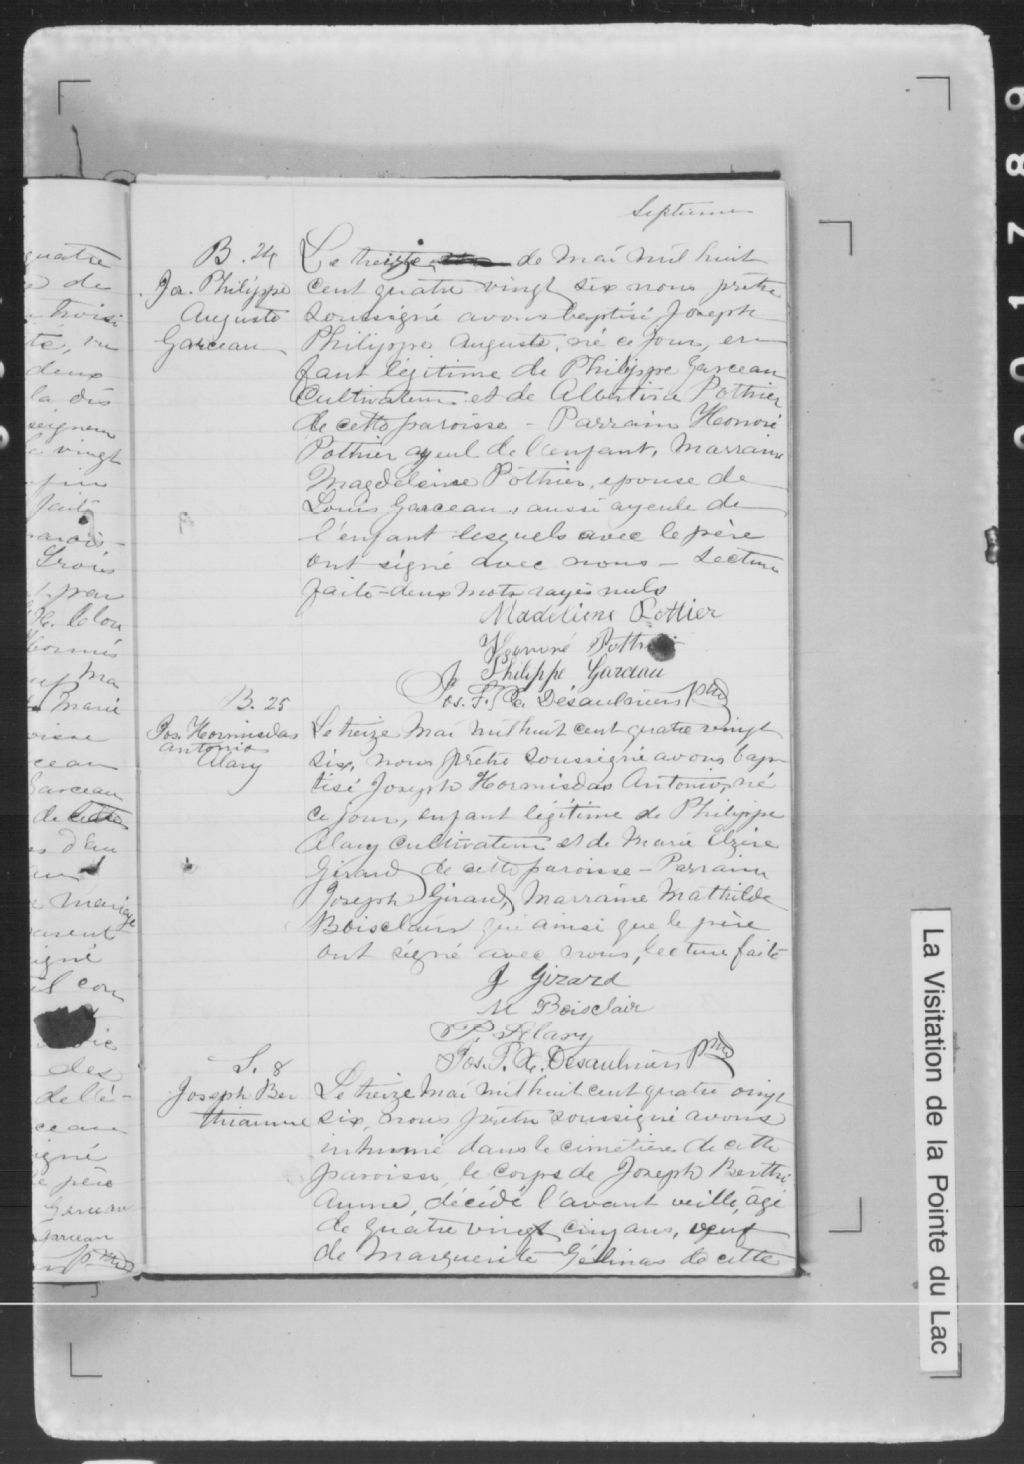 Septième
B. 24
Jos. Philippe
Auguste
Garceau
Le treize de Mai mil huit
cent quatre vingt six nous prêtre
soussigné avons baptisé Joseph
Philippe Auguste, né ce jour, en
fant légitime de Philippe Garceau
Cultivateur et de Albertine Pothier
de cette paroisse - Parrain Honoré
Pothier ayeul de l'enfant, Marraine
Magdeleine Pothier, epouse de
Louis Garceau, aussi ayeule de
l'enfant lesquels avec le père
ont signé avec nous - Lecture
faite - deux mots rayés nuls
Madeliene Pottier
Honoré Pothier
Philippe Garceau
Jos. F. X. Désaulniers ptre
B. 25
Jos. Hormisdas
Antonio
Alary
Le treize Mai mil huit cent quatre vingt
six, nous prêtre soussigné avons bap
tisé Joseph Hormisdas Antonio, né
ce jour, enfant légitime de Philippe
Alary Cultivateur et de Marie Elzire
Girard de cette paroisse - Parrain
Joseph Girard, Marraine Mathilde
Boisclair qui ainsi que le père
ont signé avec nous, lecture faite
J Girard
M Boisclair
P. Alary
Jos. F. X. Désaulniers ptre
S. 8
Joseph Ber
thiaume
Le treize Mai mil huit cent quatre vingt
six, nous prêtre soussigné avons
inhumé dans le cimetière de cette
paroisse, le corps de Joseph Berthi
aume, décédé l'avant veille, âgé
de quatre vingt cinq ans, veuf
de Marguerite Gélinas de cette
quatre
de
trois
deux
la dis
seigneur
vingt
fait
Marie
ceau
Garceau
de cette
mariage
signé
con
des
de l'é-
ceau
signé
le père
Garceau
ptre
La Visitation de la Pointe du Lac